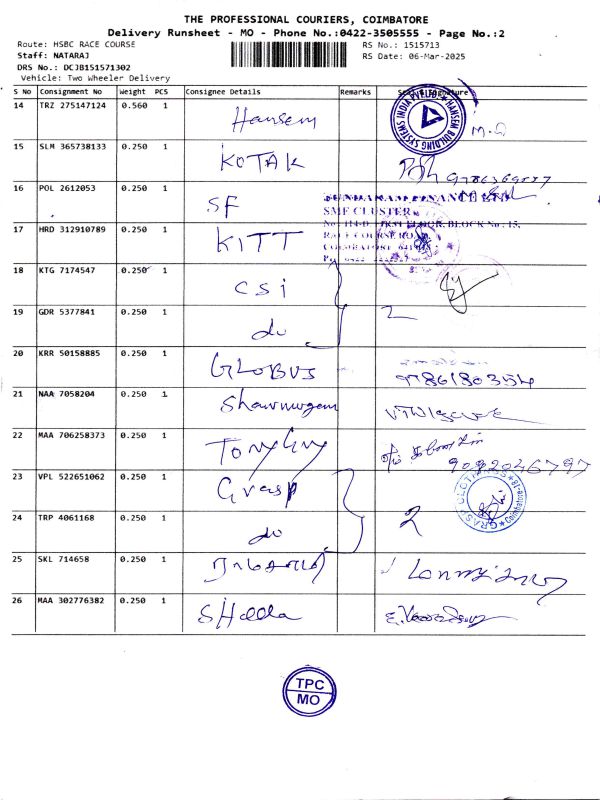 THE PROFESSIONAL COURIERS, COIMBATORE
Delivery Runsheet - MO - Phone No.:0422-3505555 - Page No.:2
Route: HSBC RACE COURSE
RS No.: 1515713
Staff: NATARAJ
RS Date: 06-Mar-2025
DRS No.: DCJB151571302
Vehicle: Two Wheeler Delivery
S No Consignment No Weight PCS Consignee Details Remarks Seal & Signature
14 TRZ 275147124 0.560 1 Hansem
HANSEN BUILDING SYSTEMS INDIA PVT LTD
15 SLM 365738133 0.250 1 KOTAK
16 POL 2612053 0.250 1 SF
SUNDARAM FINANCE LTD
SMF CLUSTER
17 HRD 312910789 0.250 1 KITT
RACE COURSE ROAD
18 KTG 7174547 0.250 1 CSI
19 GDR 5377841 0.250 1 do 2
20 KRR 50158885 0.250 1 GLOBUS 9786180354
21 NAA 7058204 0.250 1 Shanmugam
22 MAA 706258373 0.250 1 Tony Guy
23 VPL 522651062 0.250 1 Grasp
GRASP CLOTHINGS Coimbatore-18
24 TRP 4061168 0.250 1 do 2
25 SKL 714658 0.250 1
26 MAA 302776382 0.250 1 SHobha
TPC
MO